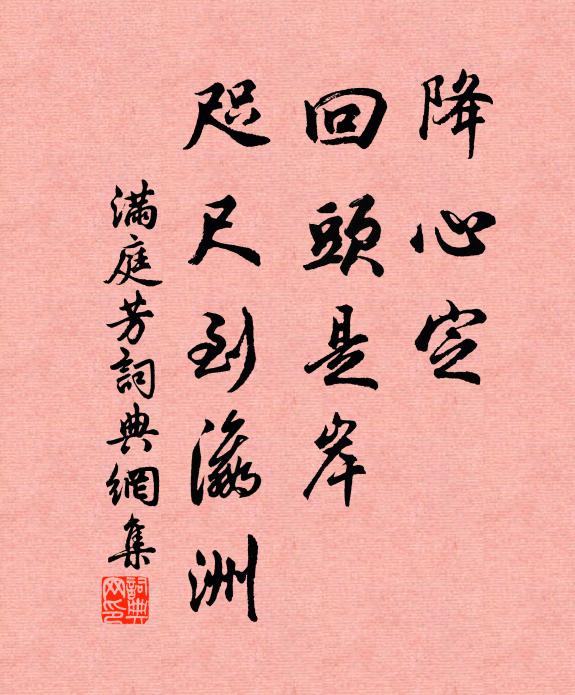 降心定
回頭是岸
咫尺到瀛洲
滿庭芳詞典網集
詞典網印